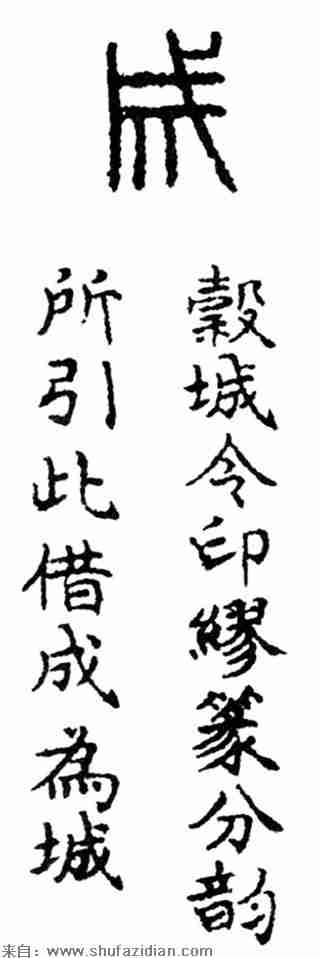 成
穀城令印繆篆分韵
所引此借成為城
来自：www.shufazidian.com